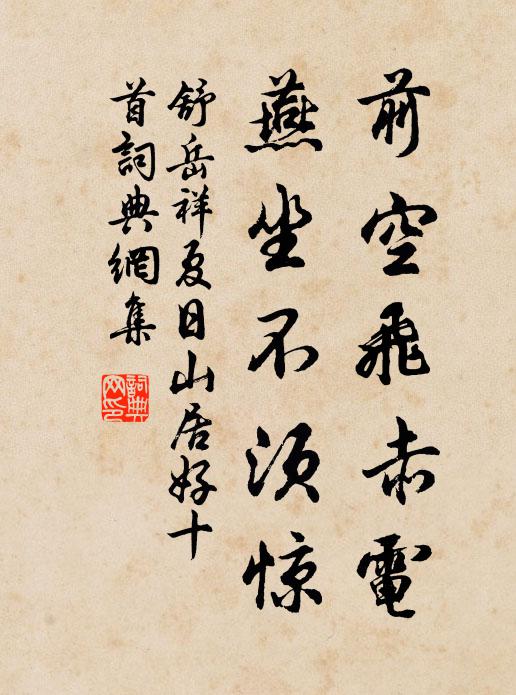 前空飛赤電
燕坐不須惊
舒岳祥夏日山居好十
首詞典網集
詞典
网印